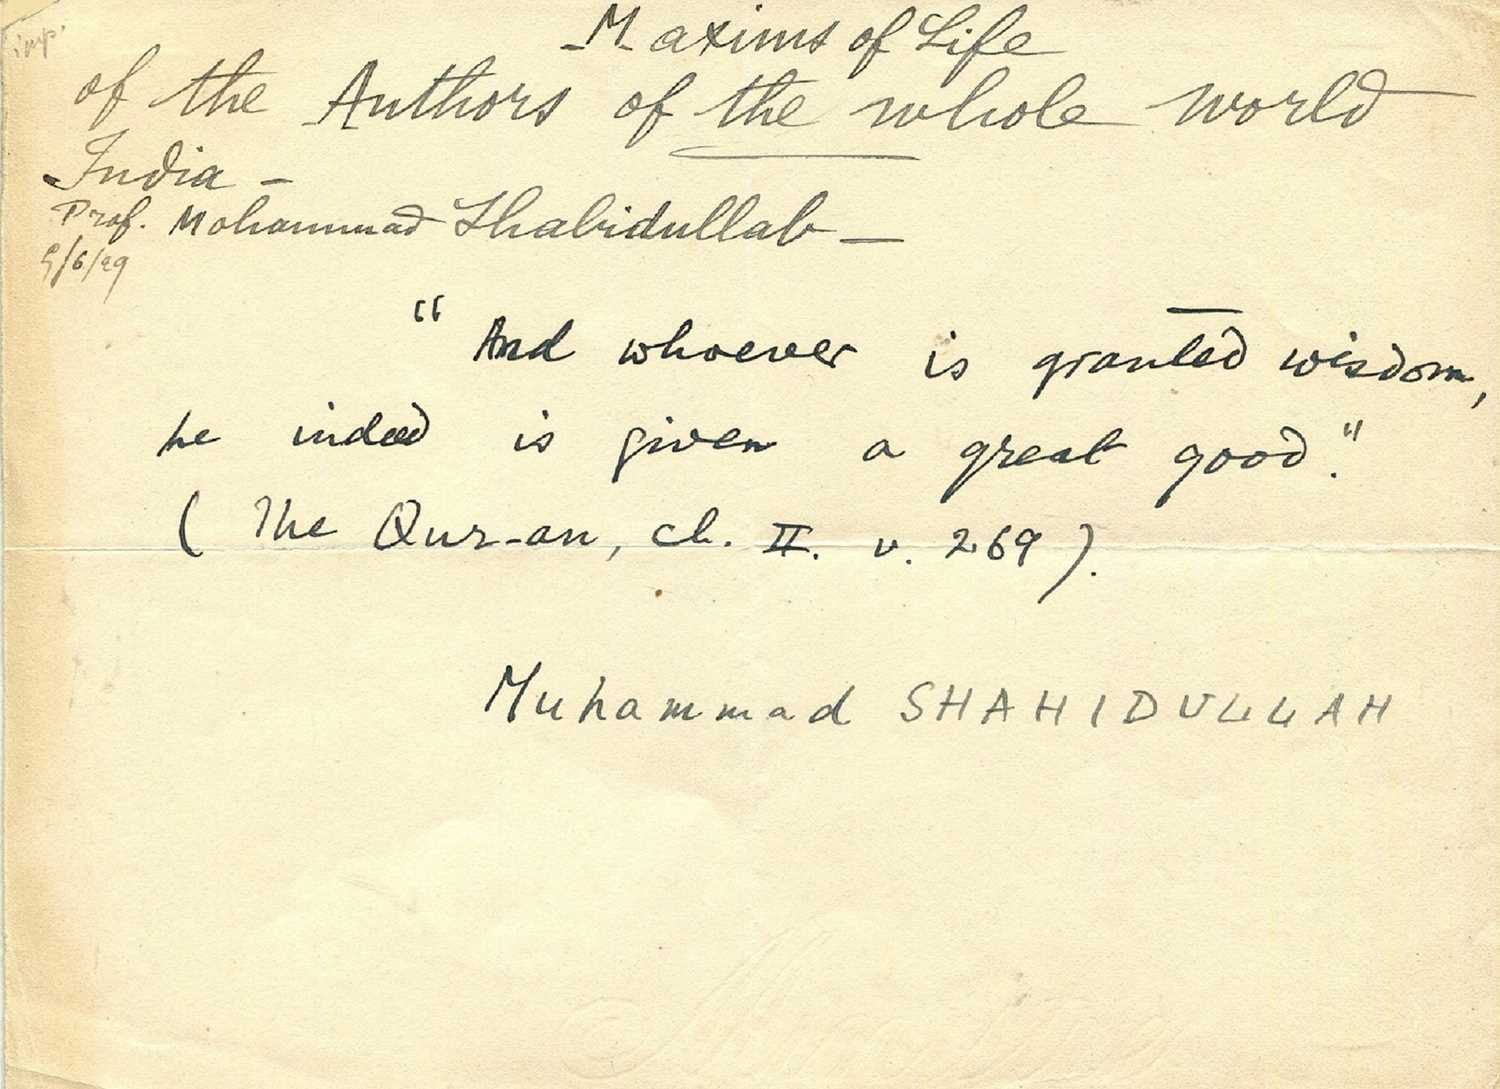 imp.
Maxims of Life
of the Authors of the whole world
India -
Prof. Mohammad Shahidullah -
9/6/29
"And whoever is granted wisdom,
he indeed is given a great good."
( The Qur-an, ch. II. v. 269 ).
Muhammad SHAHIDULLAH